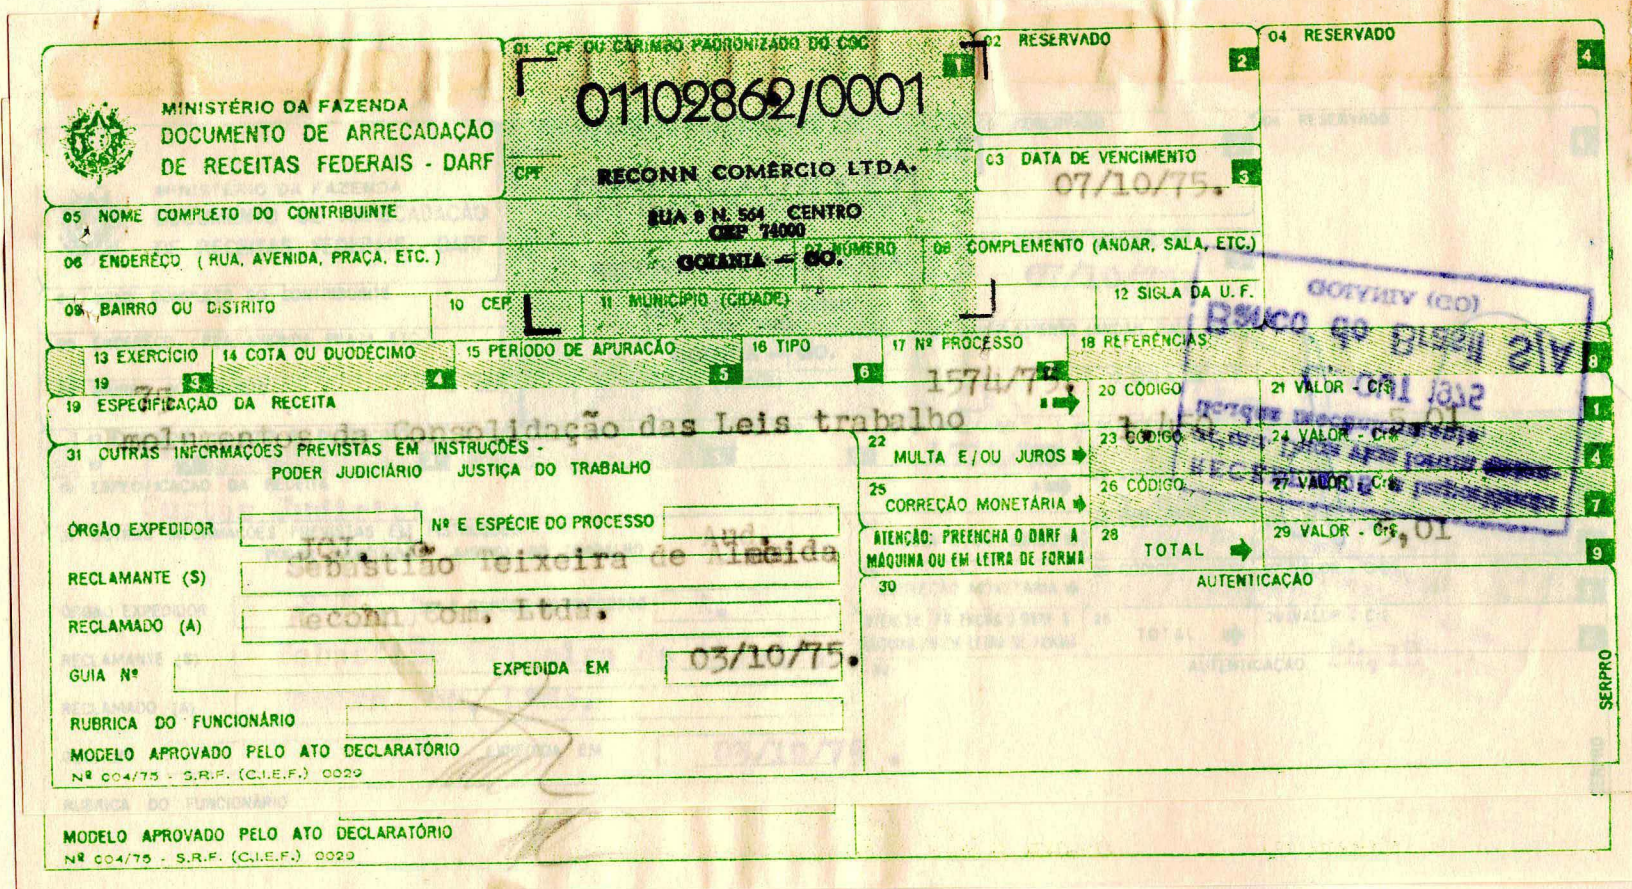 MINISTÉRIO DA FAZENDA
DOCUMENTO DE ARRECADAÇÃO
DE RECEITAS FEDERAIS - DARF
01 CPF OU CARIMBO PADRONIZADO DO CGC
1
01102862/0001
CPF
RECONN COMÉRCIO LTDA.
RUA 8 N. 564 CENTRO
CEP 74000
GOIANIA — GO.
02 RESERVADO
2
04 RESERVADO
4
03 DATA DE VENCIMENTO
3
07/10/75.
05 NOME COMPLETO DO CONTRIBUINTE
06 ENDERÊÇO (RUA, AVENIDA, PRAÇA, ETC.)
07 NÚMERO
08 COMPLEMENTO (ANDAR, SALA, ETC.)
09 BAIRRO OU DISTRITO
10 CEP
11 MUNICÍPIO (CIDADE)
12 SIGLA DA U.F.
GOIANIA (GO)
Banco do Brasil S/A
OUT 1975
13 EXERCÍCIO
19
3
14 COTA OU DUODÉCIMO
4
15 PERÍODO DE APURAÇÃO
5
16 TIPO
6
17 Nº PROCESSO
1574/75.
18 REFERÊNCIAS
8
19 ESPECIFICAÇÃO DA RECEITA
da Consolidação das Leis trabalho
20 CÓDIGO
21 VALOR - Cr$
1
5,01
22
MULTA E/OU JUROS
23 CÓDIGO
24 VALOR - Cr$
4
25
CORREÇÃO MONETÁRIA
26 CÓDIGO
27 VALOR - Cr$
7
ATENÇÃO: PREENCHA O DARF A
MÁQUINA OU EM LETRA DE FORMA
28
TOTAL
29 VALOR - Cr$
5,01
9
30
AUTENTICAÇÃO
31 OUTRAS INFORMAÇÕES PREVISTAS EM INSTRUÇÕES -
PODER JUDICIÁRIO JUSTIÇA DO TRABALHO
ÓRGÃO EXPEDIDOR
JCJ.
Nº E ESPÉCIE DO PROCESSO
Aud.
RECLAMANTE (S)
Sebastião Teixeira de Almeida
RECLAMADO (A)
Reconn Com. Ltda.
GUIA Nº
EXPEDIDA EM
03/10/75.
RUBRICA DO FUNCIONÁRIO
MODELO APROVADO PELO ATO DECLARATÓRIO
Nº 004/75 - S.R.F. (C.I.E.F.) 0029
SERPRO
RUBRICA DO FUNCIONÁRIO
MODELO APROVADO PELO ATO DECLARATÓRIO
Nº 004/75 - S.R.F. (C.I.E.F.) 0029